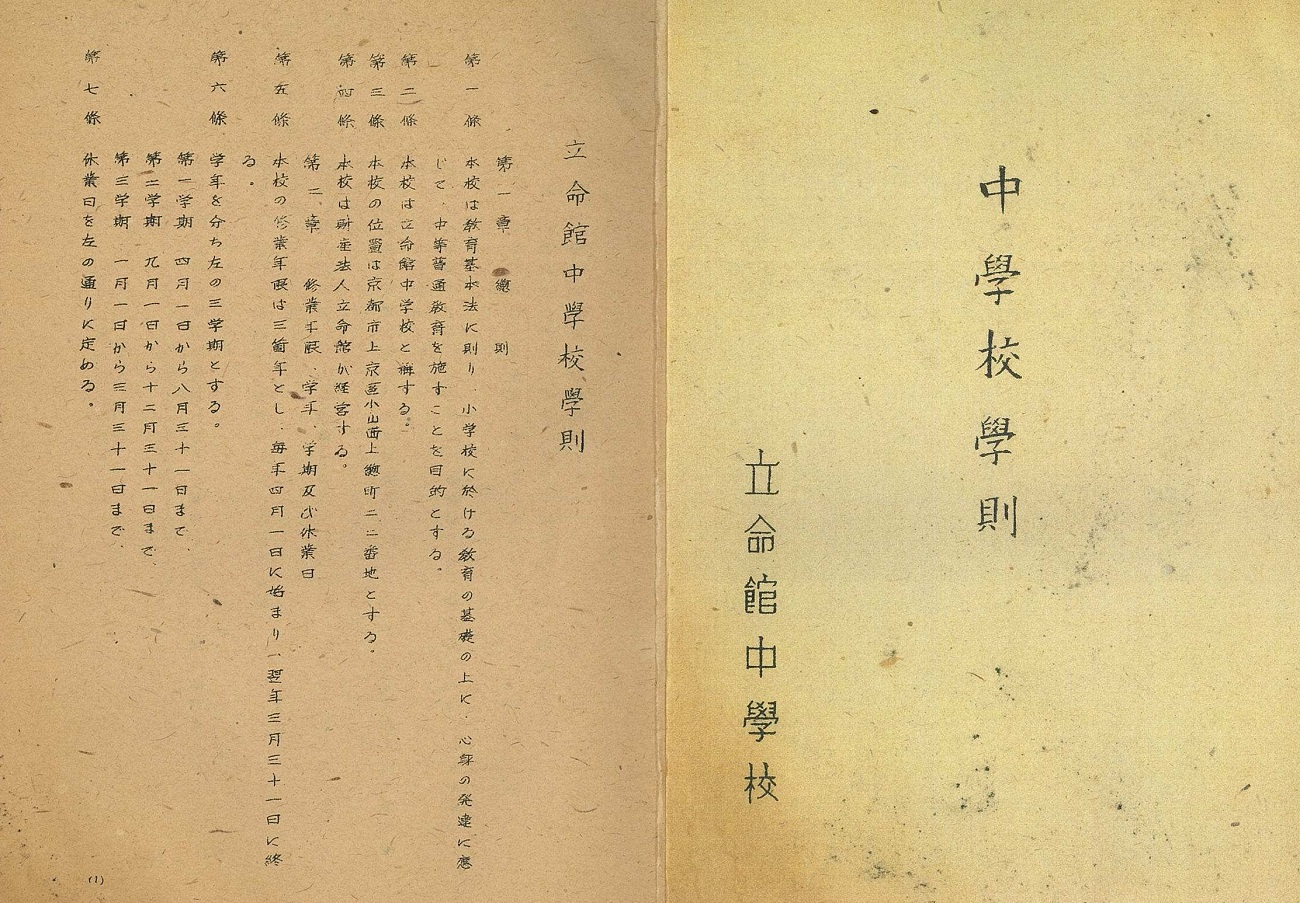 中學校學則
立命館中學校
立命館中學校學則
第一章 總則
第一條 本校は教育基本法に則り、小学校に於ける教育の基礎の上に、心身の発達に應
じて、中等普通教育を施すことを目的とする。
第二條 本校は立命館中学校と稱する。
第三條 本校の位置は京都市上京區小山西上總町二二番地とする。
第四條 本校は財団法人立命館が経営する。
第二章 修業年限、学年、学期及び休業日
第五條 本校の修業年限は三箇年とし、毎年四月一日に始まり、翌年三月三十一日に終
る。
第六條 学年を分ち左の三学期とする。
第一学期 四月一日から八月三十一日まで、
第二学期 九月一日から十二月三十一日まで、
第三学期 一月一日から三月三十一日まで、
第七條 休業日を左の通りに定める。
(1)